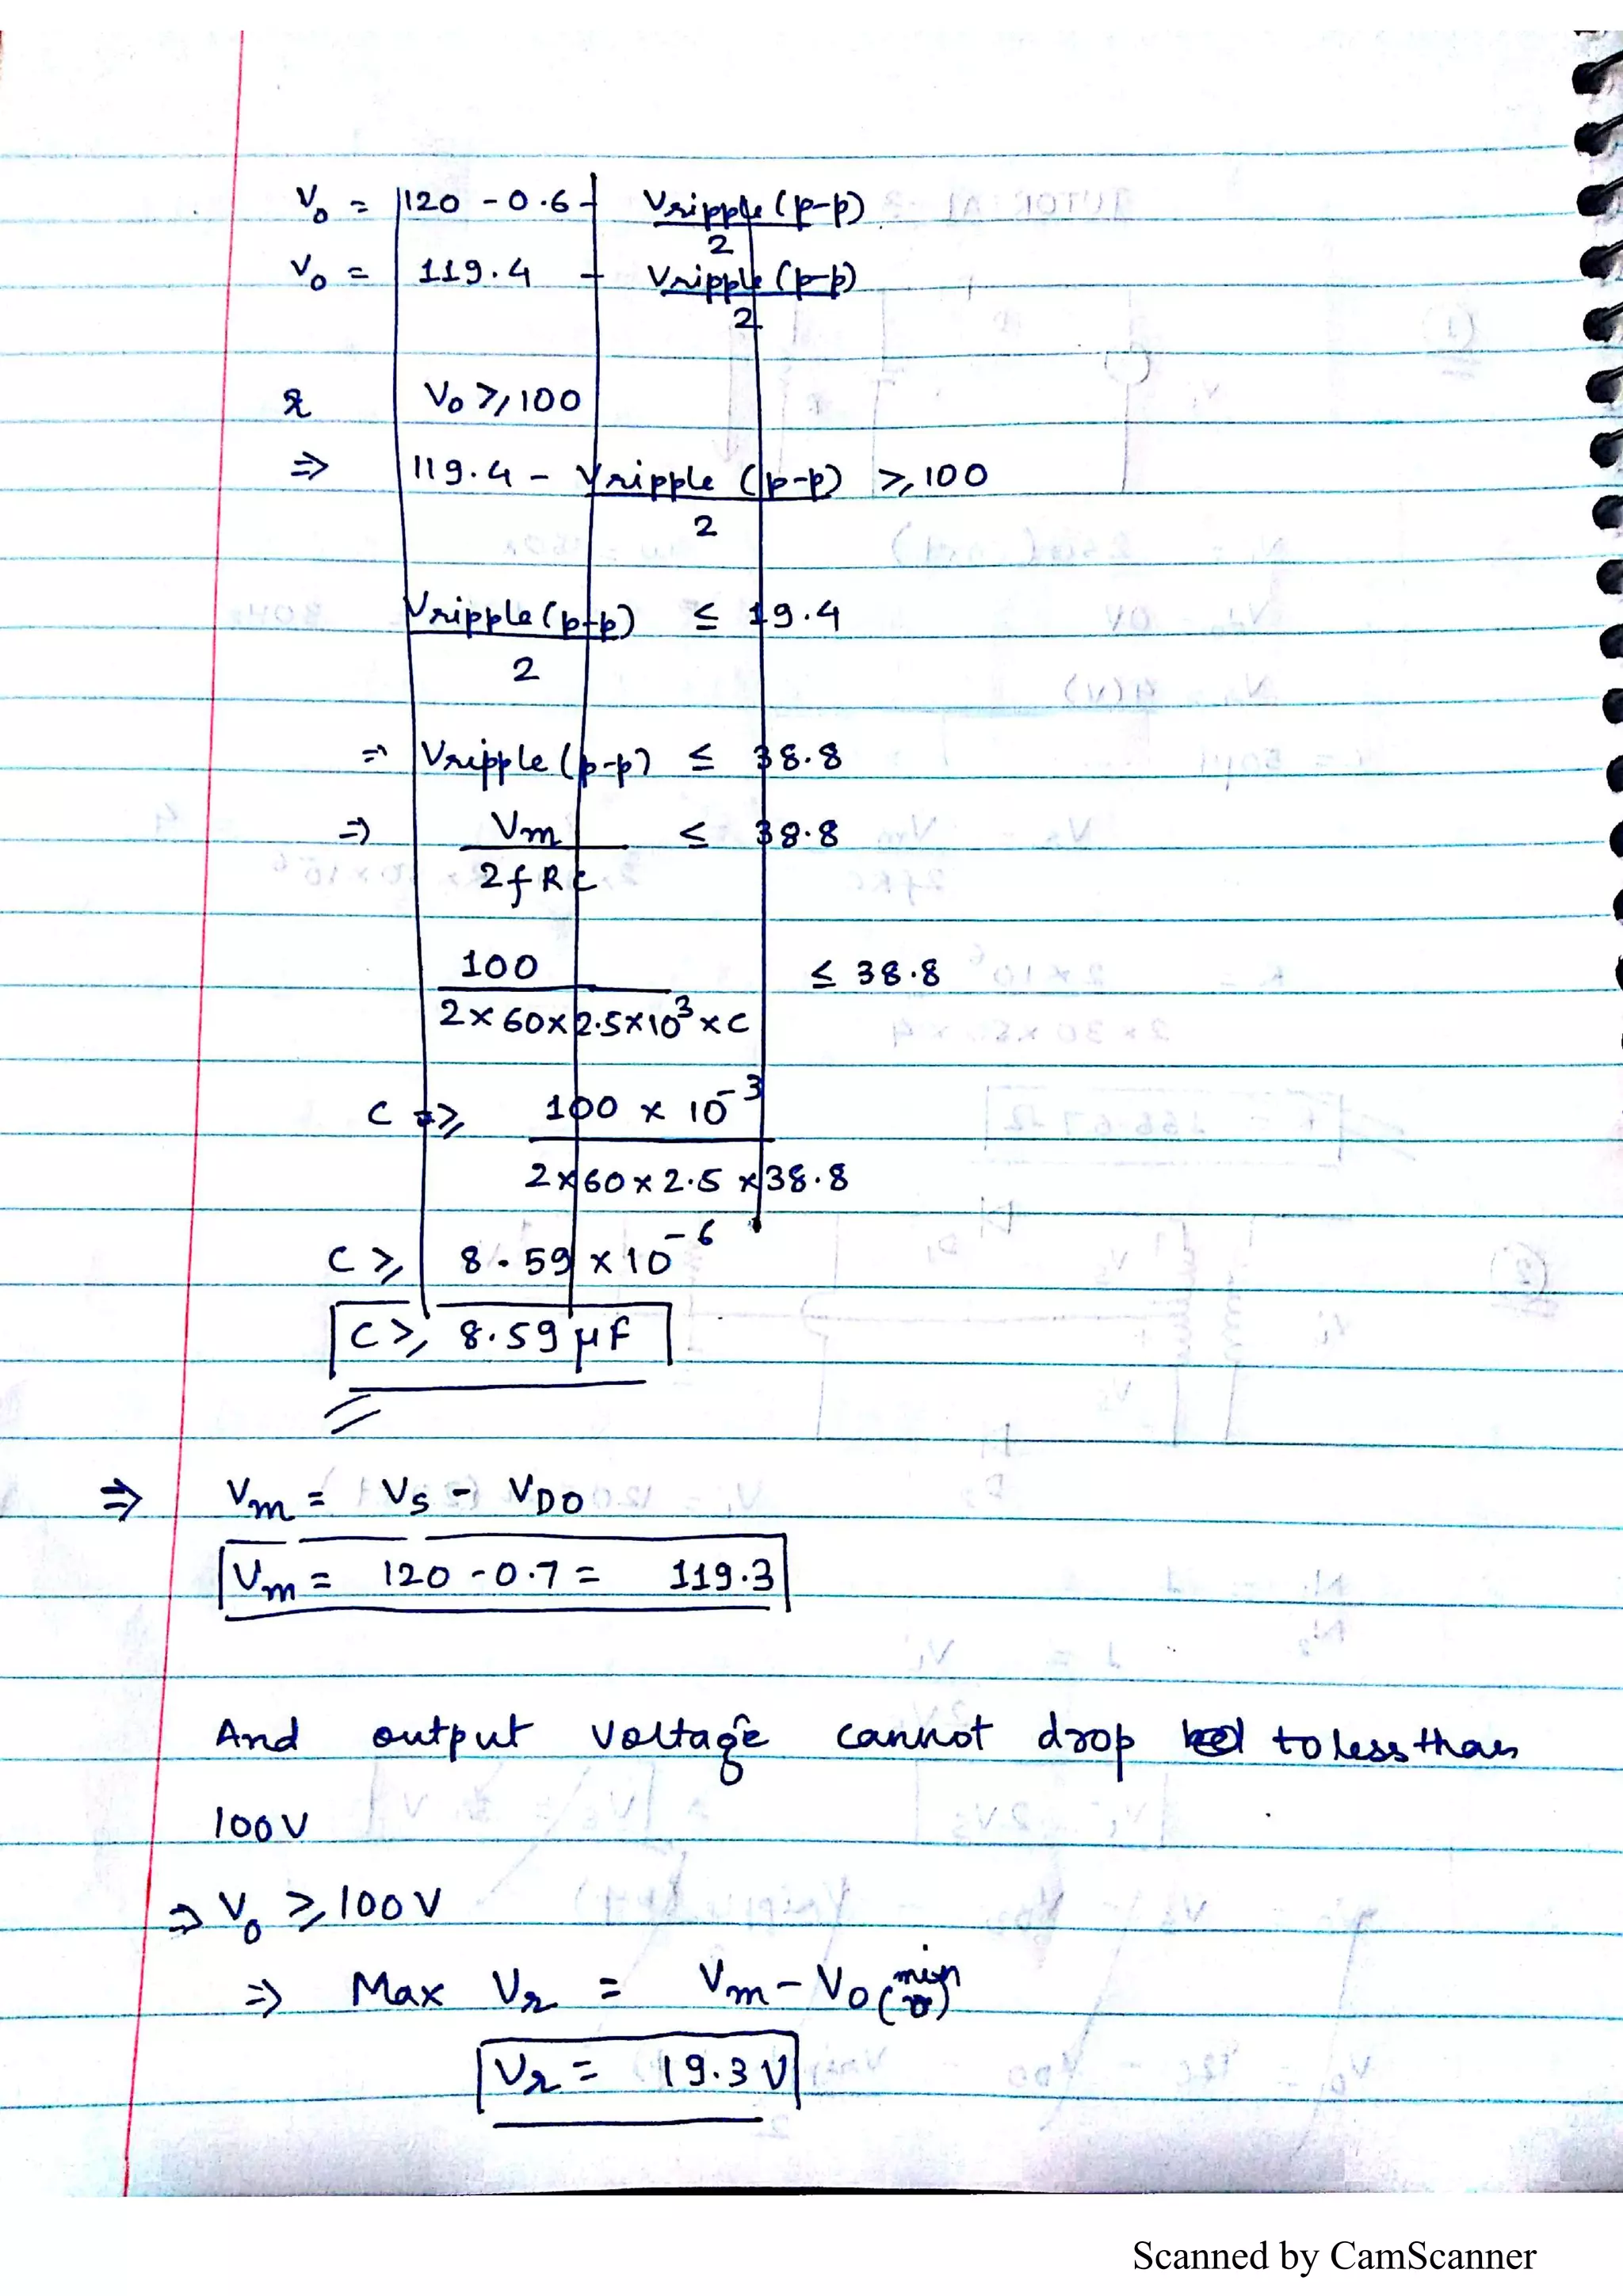 V₀ = 120 - 0.6 - Vripple(p-p)
2
V₀ = 119.4 - Vripple(p-p)
2
& V₀ ⩾ 100
⇒ 119.4 - Vripple (p-p) ⩾ 100
2
Vripple(p-p) ≤ 19.4
2
⇒ Vripple (p-p) ≤ 38.8
⇒ Vm ≤ 38.8
2fRC
100 ≤ 38.8
2×60×2.5×10³×C
C ⩾ 100 × 10⁻³
2×60×2.5×38.8
C ⩾ 8.59 × 10⁻⁶
C ⩾ 8.59 μF
⇒ Vm = VS - VDO
Vm = 120 - 0.7 = 119.3
And output voltage cannot drop to less than
100V
⇒ V₀ ⩾ 100V
⇒ Max Vr = Vm - VO(min)
Vr = 19.3 V
Scanned by CamScanner